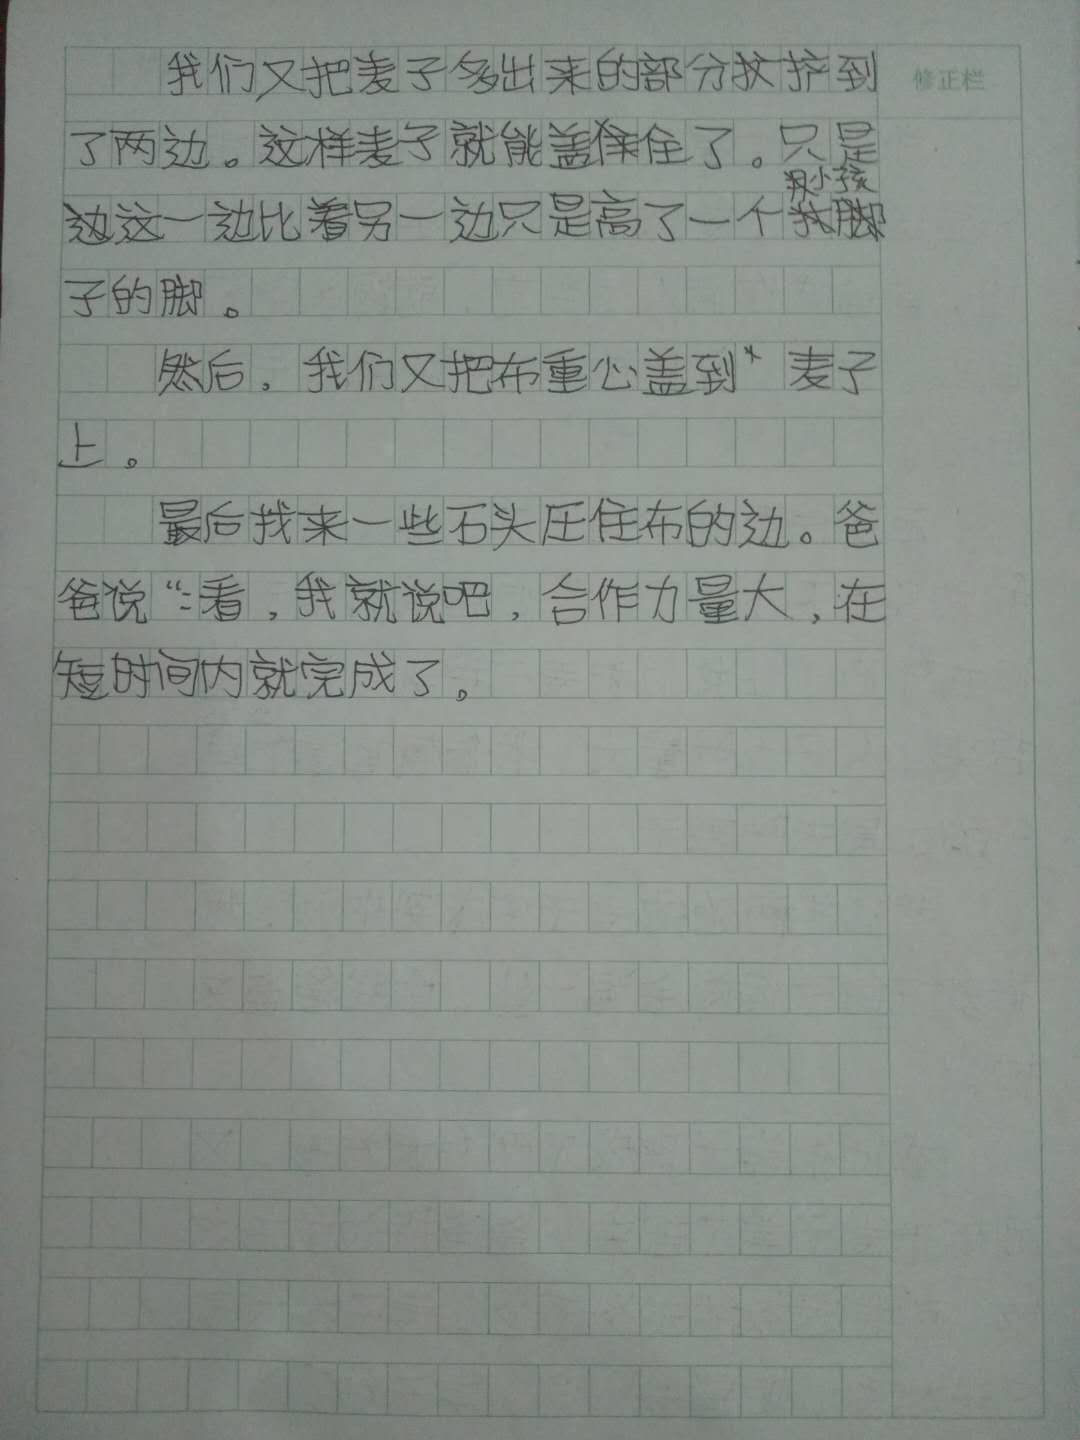 我们又把麦子多出来的部分挤到
修正栏
了两边。这样麦子就能盖住了。只是
小孩
这一边比着另一边只是高了一个脚
子的脚。
然后，我们又把布重心盖到麦子
上。
最后找来一些石头压住布的边。爸
爸说“：看，我就说吧，合作力量大，在
短时间内就完成了。